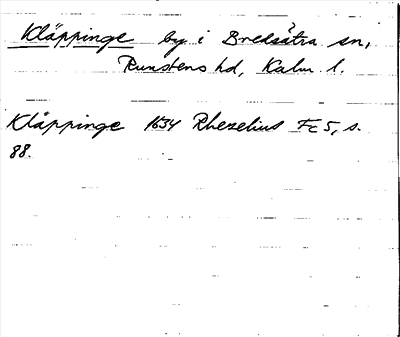 Kläppinge by i Bredsätra sn,
Runstens hd, Kalm l.
Kläppinge 1634 Rhezelius Fc 5, s.
88.